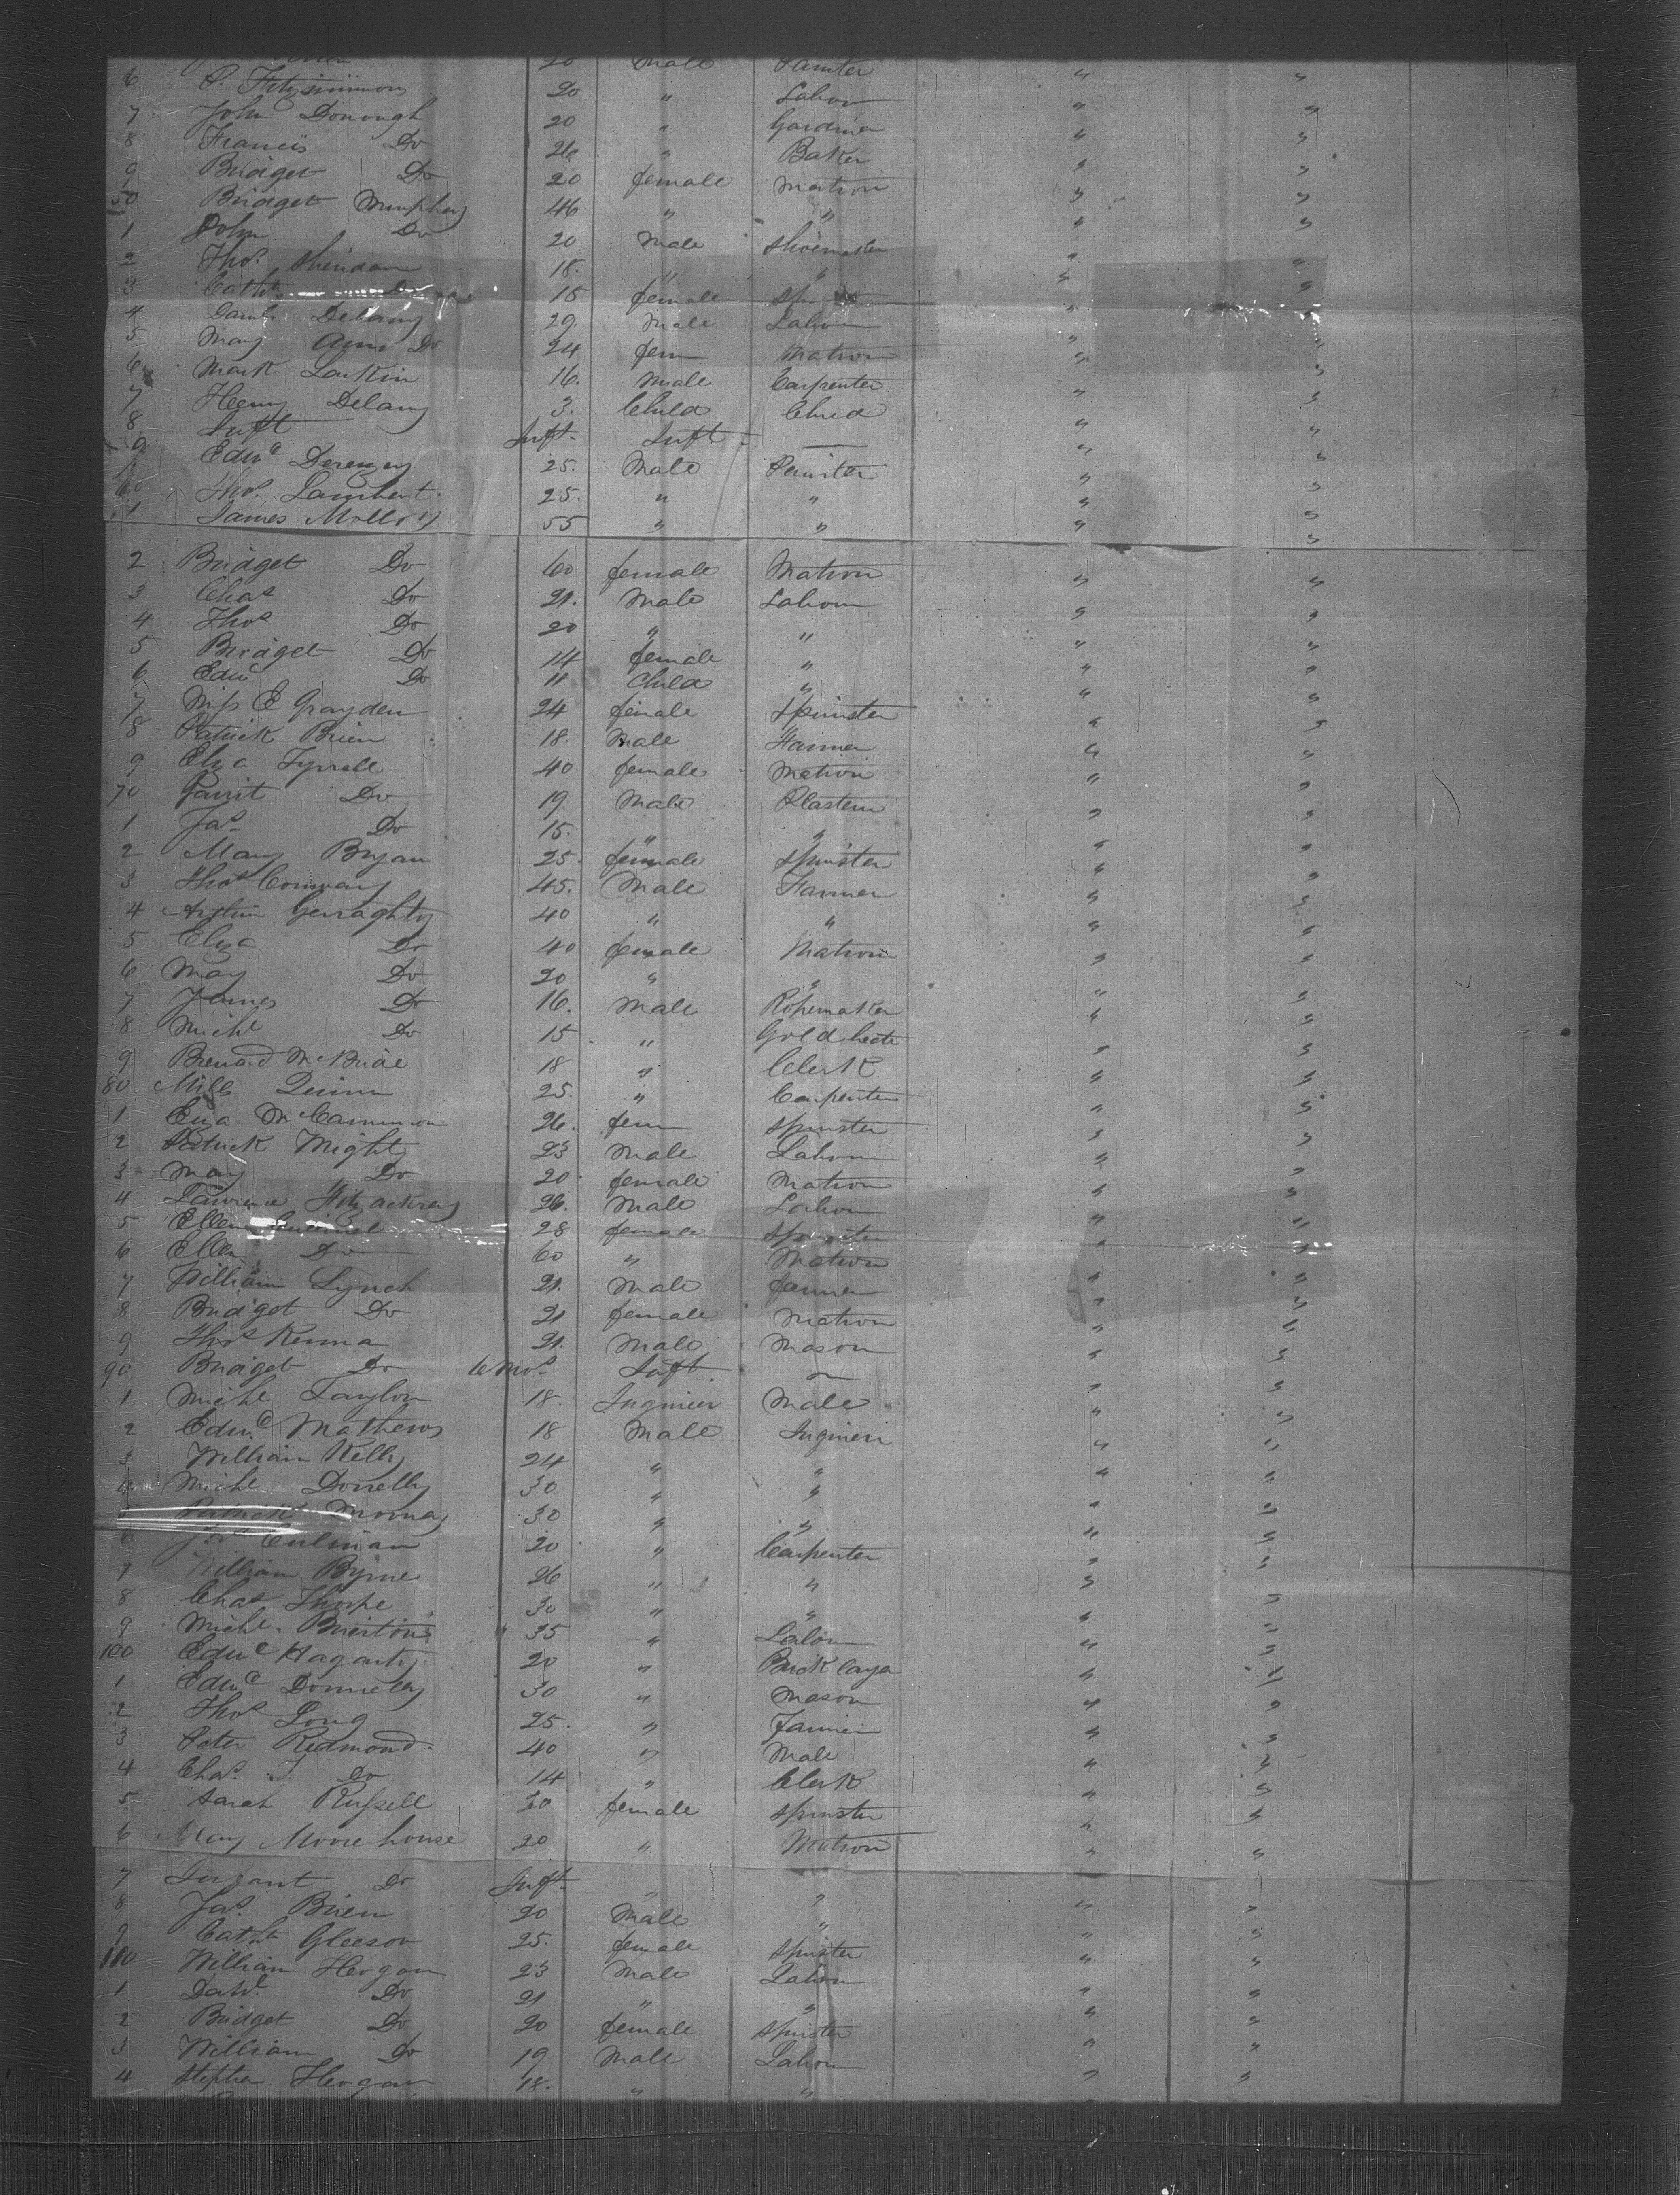 20 Male Painter " "
6 P. Fitzsimmons 20 " Labour " "
7 John Donough 20 " Gardiner " "
8 Francis Do 26 " Baker " "
9 Bridget Do 20 female Matron " "
50 Bridget Murphey 46 " " " "
1 John Do 20 Male Shoemaker " "
2 Thos. Sheridan 18. " " " "
3 Cath 15 female " "
4 Delany 29. Male Labour " "
5 Mary Ann Do 24 fem Matron " "
6 Mark Larkin 16. Male Carpenter " "
7 Henry Delany 3. Child Child " "
8 Inft Inft. Inft - " "
9 Edwd Derenzy 25. Male Painter " "
60 Thos. Lambert. 25. " " " "
1 James Molloy 55 " " " "
2 Bridget Do 60 female Matron " "
3 Chas Do 21. Male Labour " "
4 Thos Do 20 " " " "
5 Bridget Do 14 female " " "
6 Edwd Do 11 Child " " "
7 Miss E Grayden 24 female Spinster " "
8 Patrick Brien 18. Male Farmer " "
9 Eliza Tyrrell 40 female Matron " "
70 Do 19 Male Plasterer " "
1 Jas. Do 15. " " " "
2 Mary Bryan 25. female Spinster " "
3 Thos Conway 45. Male Farmer " "
4 Gerraghty 40 " " " "
5 Eliza Do 40 female Matron " "
6 Mary Do 20 " " " "
7 James Do 16. Male Ropemaker " "
8 Michl Do 15 " Gold beate " "
9 Bernard McBride 18 " Clerk " "
80 Miles Quinn 25. " Carpenter " "
1 Eliza 26. fem Spinster " "
2 Patrick Mighty 23 Male Labour " "
3 Mary Do 20 female Matron " "
4 Lawrence 26. Male Labour " "
5 Ellen 28 female Spinster " "
6 Ellen Do 60 " Matron " "
7 William Lynch 21. Male Farmer " "
8 Bridget Do 21 female Matron " "
9 Thos Kenna 21. Male Mason " "
90 Bridget Do 6 Mos. Inft. " "
1 Michl Taylor 18. Inginier Male " "
2 Edwd Mathews 18 Male Inginier " "
3 William Kelly 24 " " " "
4 Michl Donelly 30 " " " "
Patrick 30 " " " "
6 20 " Carpenter " "
7 William Byrne 26 " " " "
8 Chas Thorpe 30 " " " "
9 Michl. 35 " Labour " "
100 Edwd Hagarty. 20 " Bricklayer " "
1 Edwd Donnelly 30 " Mason " "
2 Thos Long 25. " Farmer " "
3 Peter Redmond. 40 " Male " "
4 Chas. Do 14 " Clerk " "
5 Sarah Russell 20 female Spinster " "
6 Mary Moorehouse 20 " Matron " "
7 Do Inft. " " "
8 Jas. Brien 20 Male " " "
9 Cath Gleeson 25. female Spinster " "
110 William Hergan 23 Male Labour " "
1 Do 21 " " " "
2 Bridget Do 20 female Spinster " "
3 William Do 19 Male Labour " "
4 Stephen Hergan 18. " " " "